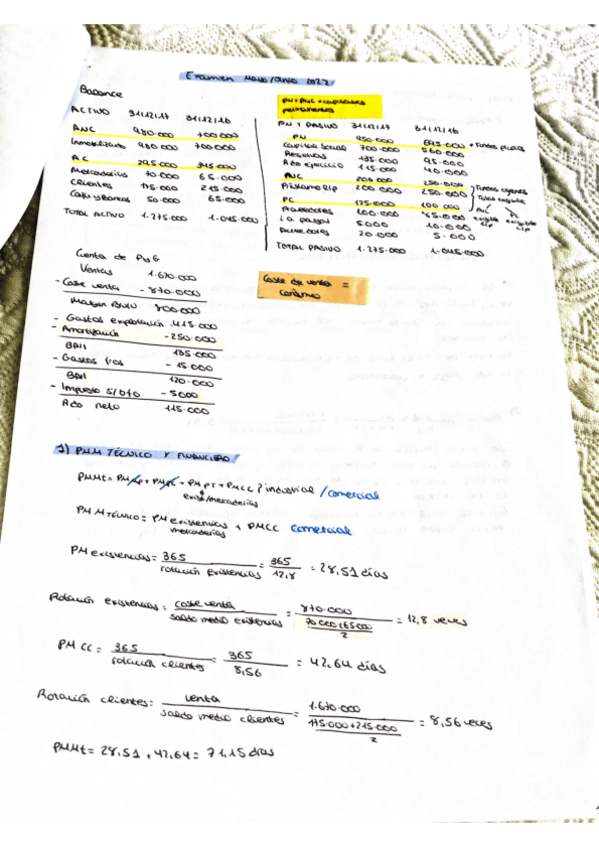 Examen Mayo/Junio 2022
Balance
PN + PNC = capitales permanentes
ACTIVO 31/12/17 31/12/16
ANC 980.000 700.000
Inmovilizado 980.000 700.000
AC 295.000 345.000
Mercaderías 70.000 65.000
Clientes 175.000 215.000
Caja y Bancos 50.000 65.000
TOTAL ACTIVO 1.275.000 1.045.000
PN + PASIVO 31/12/17 31/12/16
PN 950.000 695.000 → Fondos propios
Capital Social 700.000 560.000
Reservas 135.000 95.000
Rdo ejercicio 115.000 40.000
PNC 200.000 250.000
Préstamo l/p 200.000 250.000
Fondos ajenos
Todo exigible
PC 125.000 100.000
PNC exigible l/p
PC exigible c/p
Proveedores 100.000 85.000
i.a pagar 5000 10.000
Acreedores 20.000 5.000
TOTAL PASIVO 1.275.000 1.045.000
Cuenta de PyG
Ventas 1.670.000
- Coste venta - 870.000
Margen Bruto 800.000
- Gastos explotación 415.000
- Amortización - 250.000
BAII 135.000
- Gastos fros - 15.000
BAI 120.000
- Impuesto s/bfo - 5000
Rdo neto 115.000
Coste de venta = consumo
1) PMM TÉCNICO Y FINANCIERO/
PMMt = PMap + PMpc + PMPT + PMCC } industrial / comercial
exist/mercaderías
PMM TÉCNICO = PM existencias + PMCC comercial
mercaderías
PM existencias = 365 / rotación existencias = 365 / 12,8 = 28,51 días
Rotación existencias = coste venta / saldo medio existencias = 870.000 / (70.000+65.000 / 2) = 12,8 veces
PM CC = 365 / rotación clientes = 365 / 8,56 = 42,64 días
Rotación clientes = venta / saldo medio clientes = 1.670.000 / (175.000+215.000 / 2) = 8,56 veces
PMMt = 28,51 + 42,64 = 71,15 días